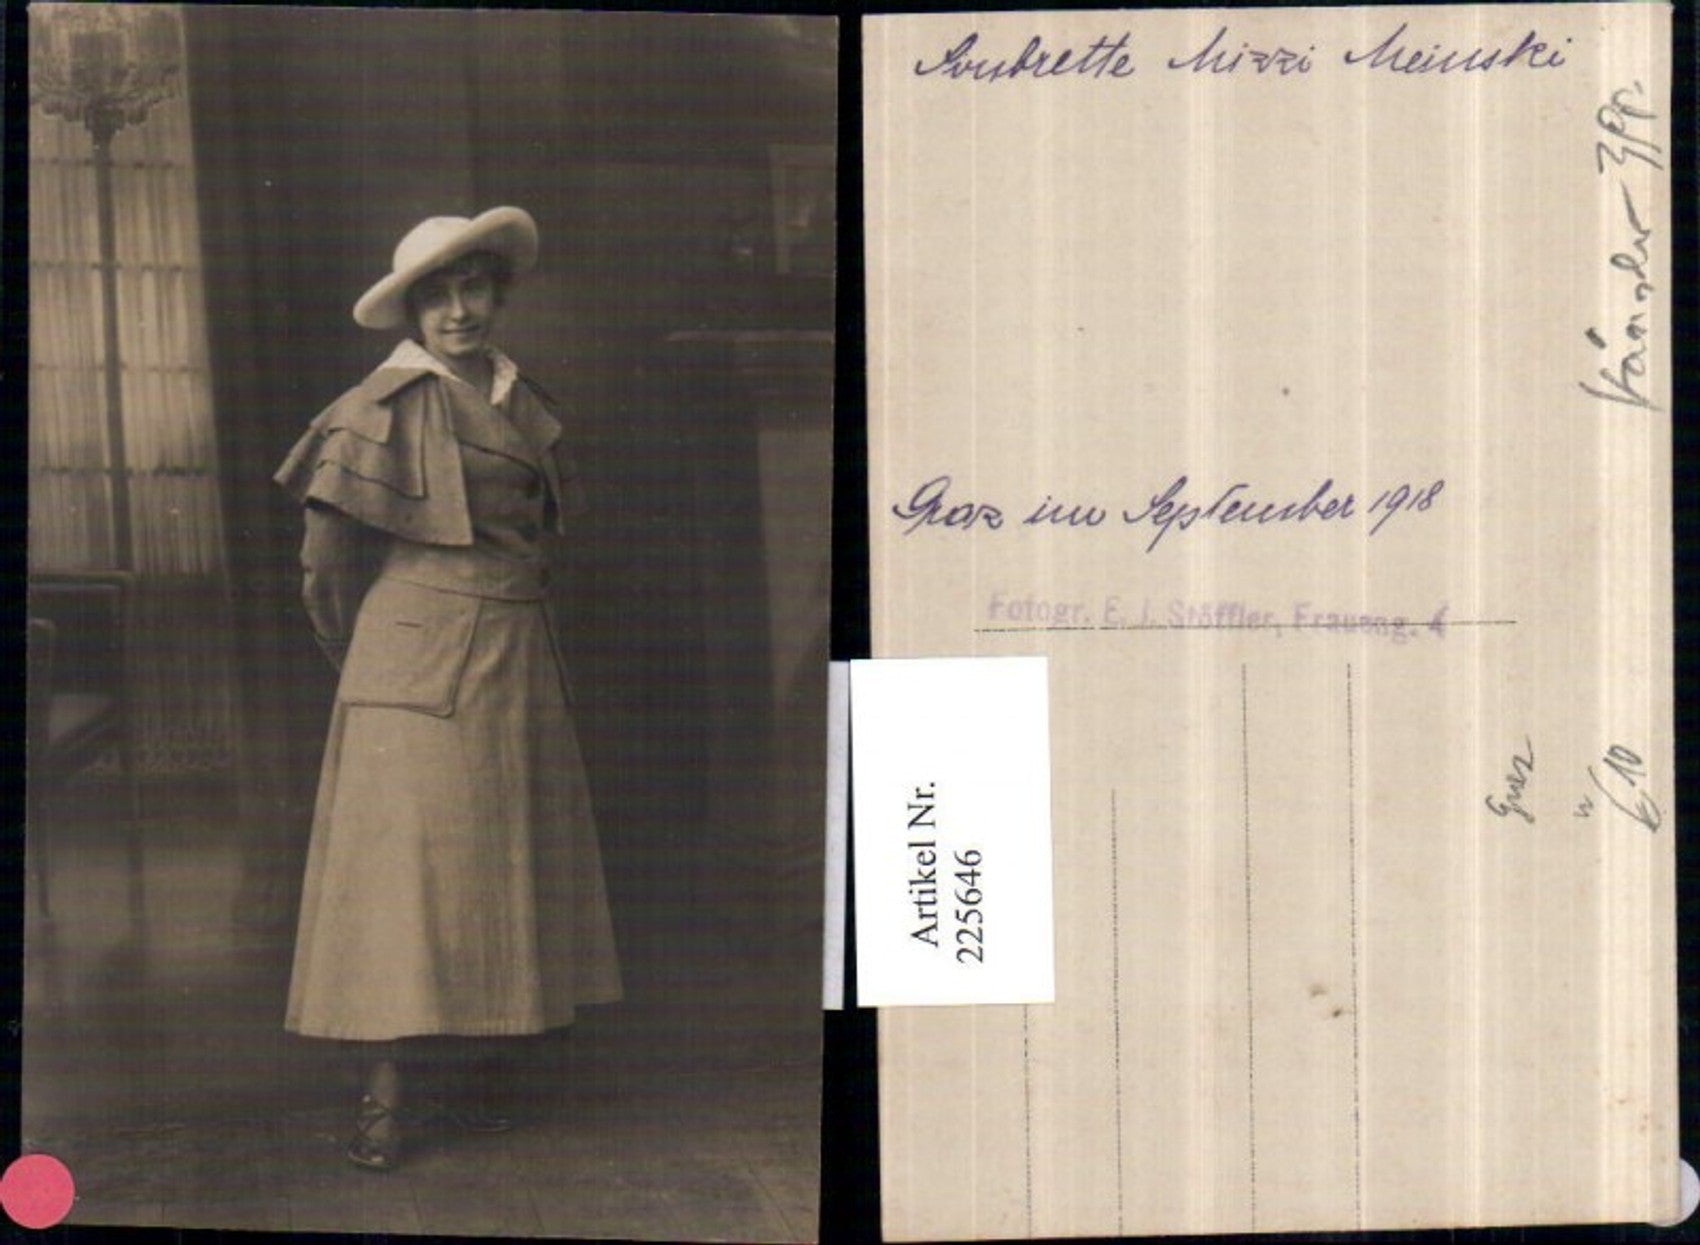 Soubrette Mizzi Meinski
Graz im September 1918
Fotogr. E. J. Stöffler, Fraueng. 4
Artikel Nr.
225646
Graz
€ 10